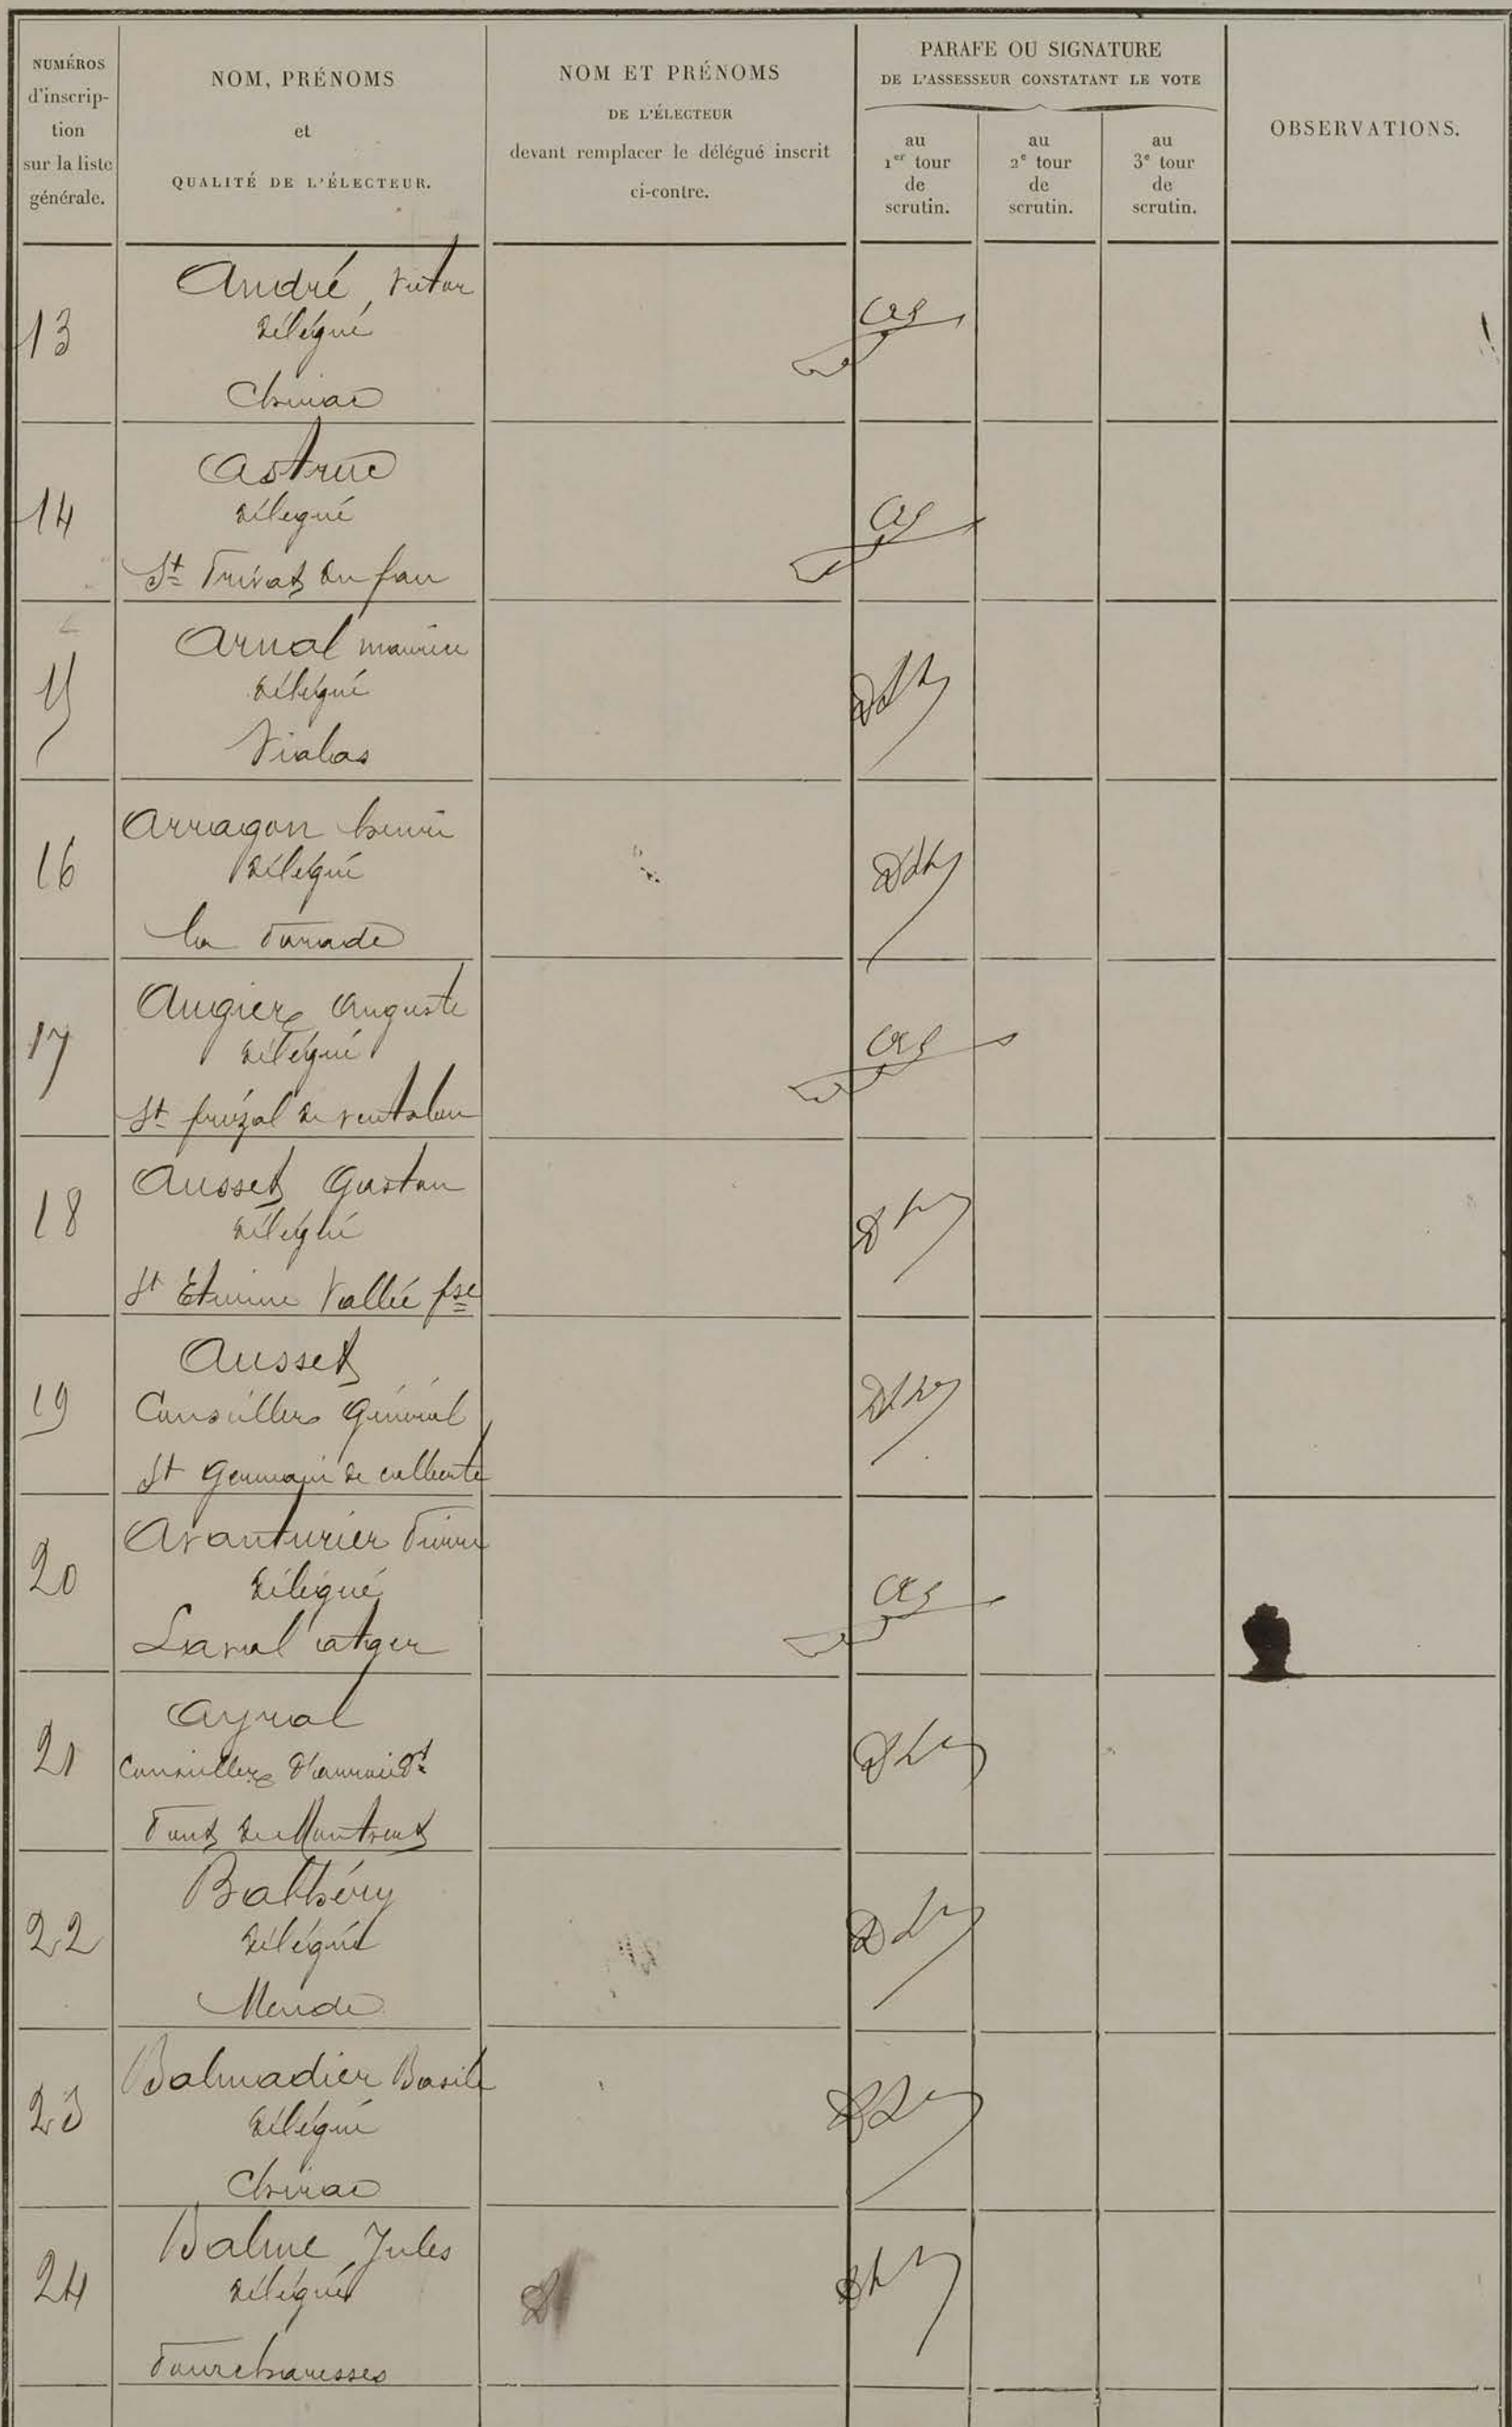 NUMÉROS
d'inscrip-
tion
sur la liste
générale.
NOM, PRÉNOMS
et
QUALITÉ DE L'ÉLECTEUR.
NOM ET PRÉNOMS
DE L'ÉLECTEUR
devant remplacer le délégué inscrit
ci-contre.
PARAFE OU SIGNATURE
DE L'ASSESSEUR CONSTATANT LE VOTE
au
1er tour
de
scrutin.
au
2e tour
de
scrutin.
au
3e tour
de
scrutin.
OBSERVATIONS.
13
André Victor
Délégué
Chirac
14
Astruc
Délegué
St Privat du fau
15
Arnal maurice
Délégué
Vialas
16
Arragon henri
Délégué
la Panade
17
Augier Auguste
Délégué
St frézal de ventalon
18
Ausset Gaston
Délégué
St Etienne Vallée fse
19
Ausset
Conseiller Général
St Germain de calberte
20
Avanturier Pierre
Délégué
Laval atger
21
Ayral
Conseiller d'arrondt
Pont de Montvert
22
Balthéry
Délégué
Mende
23
Balmadier Basile
Délégué
Chirac
24
Balme Jules
Délégué
Pourcharesses